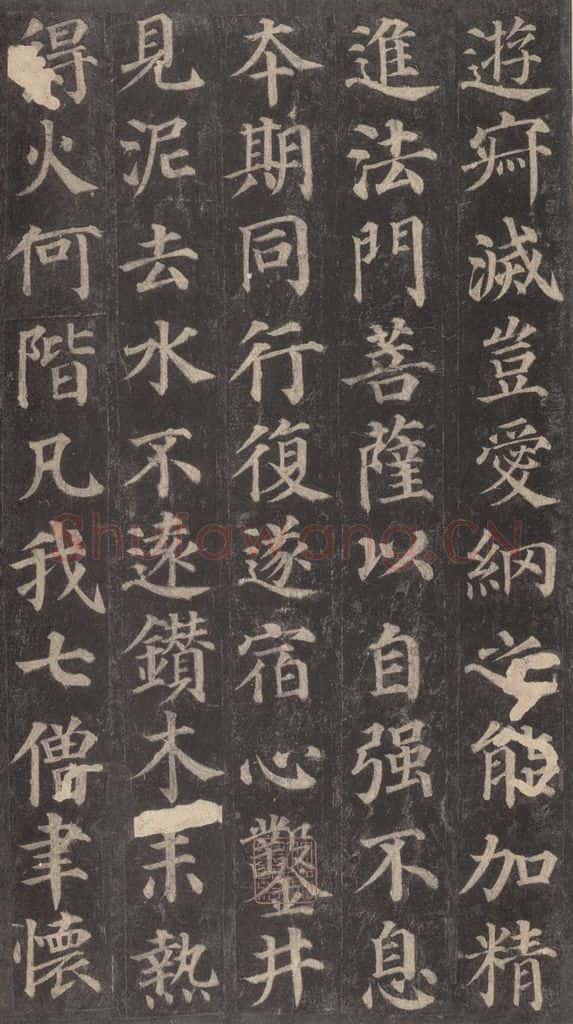 遊寂滅豈愛網之能加精
進法門菩薩以自强不息
夲期同行復遂宿心鑿井
見泥去水不遠鑽木未熱
得火何階凡我七僧聿懷
Shufawang.CN